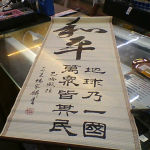 和平
地球乃一國
萬眾皆其民